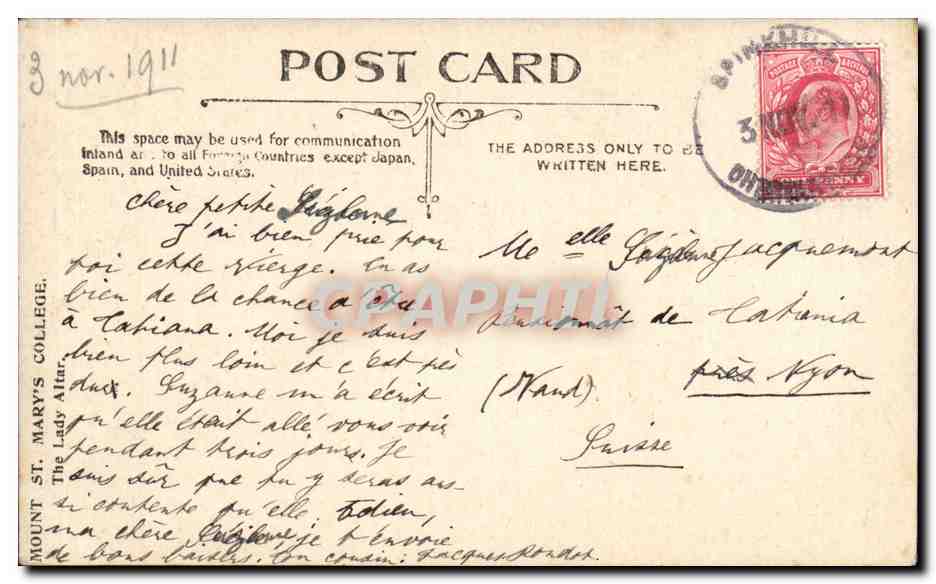 3 nov. 1911
POST CARD
This space may be used for communication
Inland and to all Foreign Countries except Japan,
Spain, and United States.
THE ADDRESS ONLY TO BE
WRITTEN HERE.
POSTAGE REVENUE
ONE PENNY
3 NO
chère petite
J'ai bien prié pour
toi cette Vierge. Tu as
bien de la chance d'être
à Tatiana. Moi je suis
bien plus loin et c'est très
dur. Suzanne m'a écrit
qu'elle était allé vous voir
pendant trois jours. Je
suis sûr que tu y seras aus-
si contente qu'elle Adieu,
ma chère je t'envoie
de bons baisers. ton cousin: Jacques Rondot.
Melle Jacquemont
Pensionnât de Tatiania
près Nyon
(Vaud).
Suisse
MOUNT ST. MARY'S COLLEGE.
The Lady Altar.
CPAPHIL